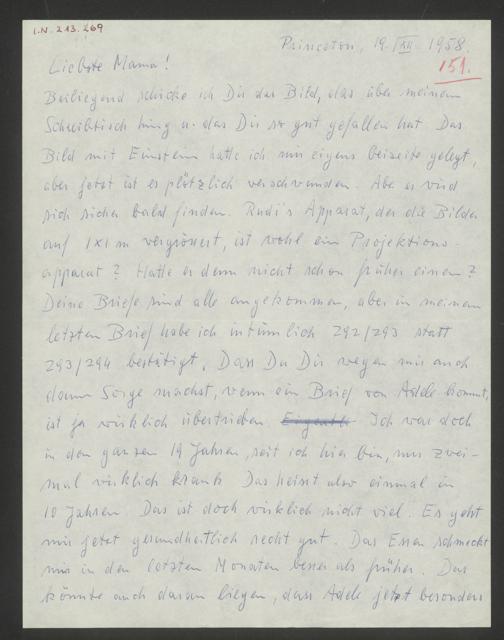 I.N. 213.269
Princeton, 19./XII. 1958.
151.
Liebste Mama!
Beiliegend schicke ich Dir das Bild, das über meinem
Schreibtisch hing u. das Dir so gut gefallen hat. Das
Bild mit Einstein hatte ich mir eigens beiseite gelegt,
aber jetzt ist es plötzlich verschwunden. Aber es wird
sich sicher bald finden. Rudi's Apparat, der die Bilder
auf 1x1 m vergrössert, ist wohl ein Projektions-
apparat? Hatte er denn nicht schon früher einen?
Deine Briefe sind alle angekommen, aber in meinem
letzten Brief habe ich irrtümlich 292/293 statt
293/294 bestätigt. Dass Du Dir wegen mir auch
dann Sorge machst, wenn ein Brief von Adele kommt,
ist ja wirklich übertrieben. Ich war doch
in den ganzen 19 Jahren, seit ich hier bin, nur zwei-
mal wirklich krank. Das heisst also einmal in
10 Jahren. Das ist doch wirklich nicht viel. Es geht
mir jetzt gesundheitlich recht gut. Das Essen schmeckt
mir in den letzten Monaten besser als früher. Das
könnte auch daran liegen, dass Adele jetzt besonders